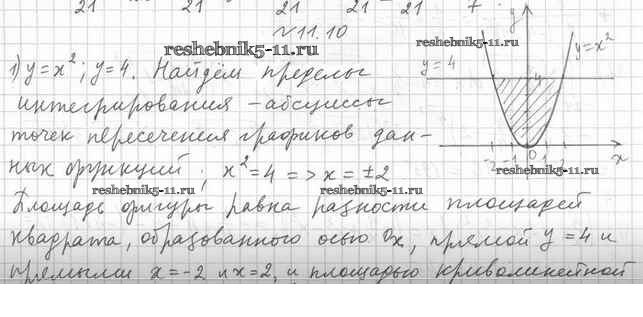 21 21 21 21 7
№11.10
reshebnik5-11.ru
reshebnik5-11.ru
y
y=x²
y=4
4
1) y=x²; y=4. Найдём пределы
интегрирования – абсциссы
точек пересечения графиков дан-
ных функций; x²=4 => x=±2
-2 -1 0 1 2 x
reshebnik5-11.ru
reshebnik5-11.ru
reshebnik5-11.ru
Площадь фигуры равна разности площадей
квадрата, образованного осью Ox, прямой y=4 и
прямыми x=-2 и x=2, и площадью криволинейной